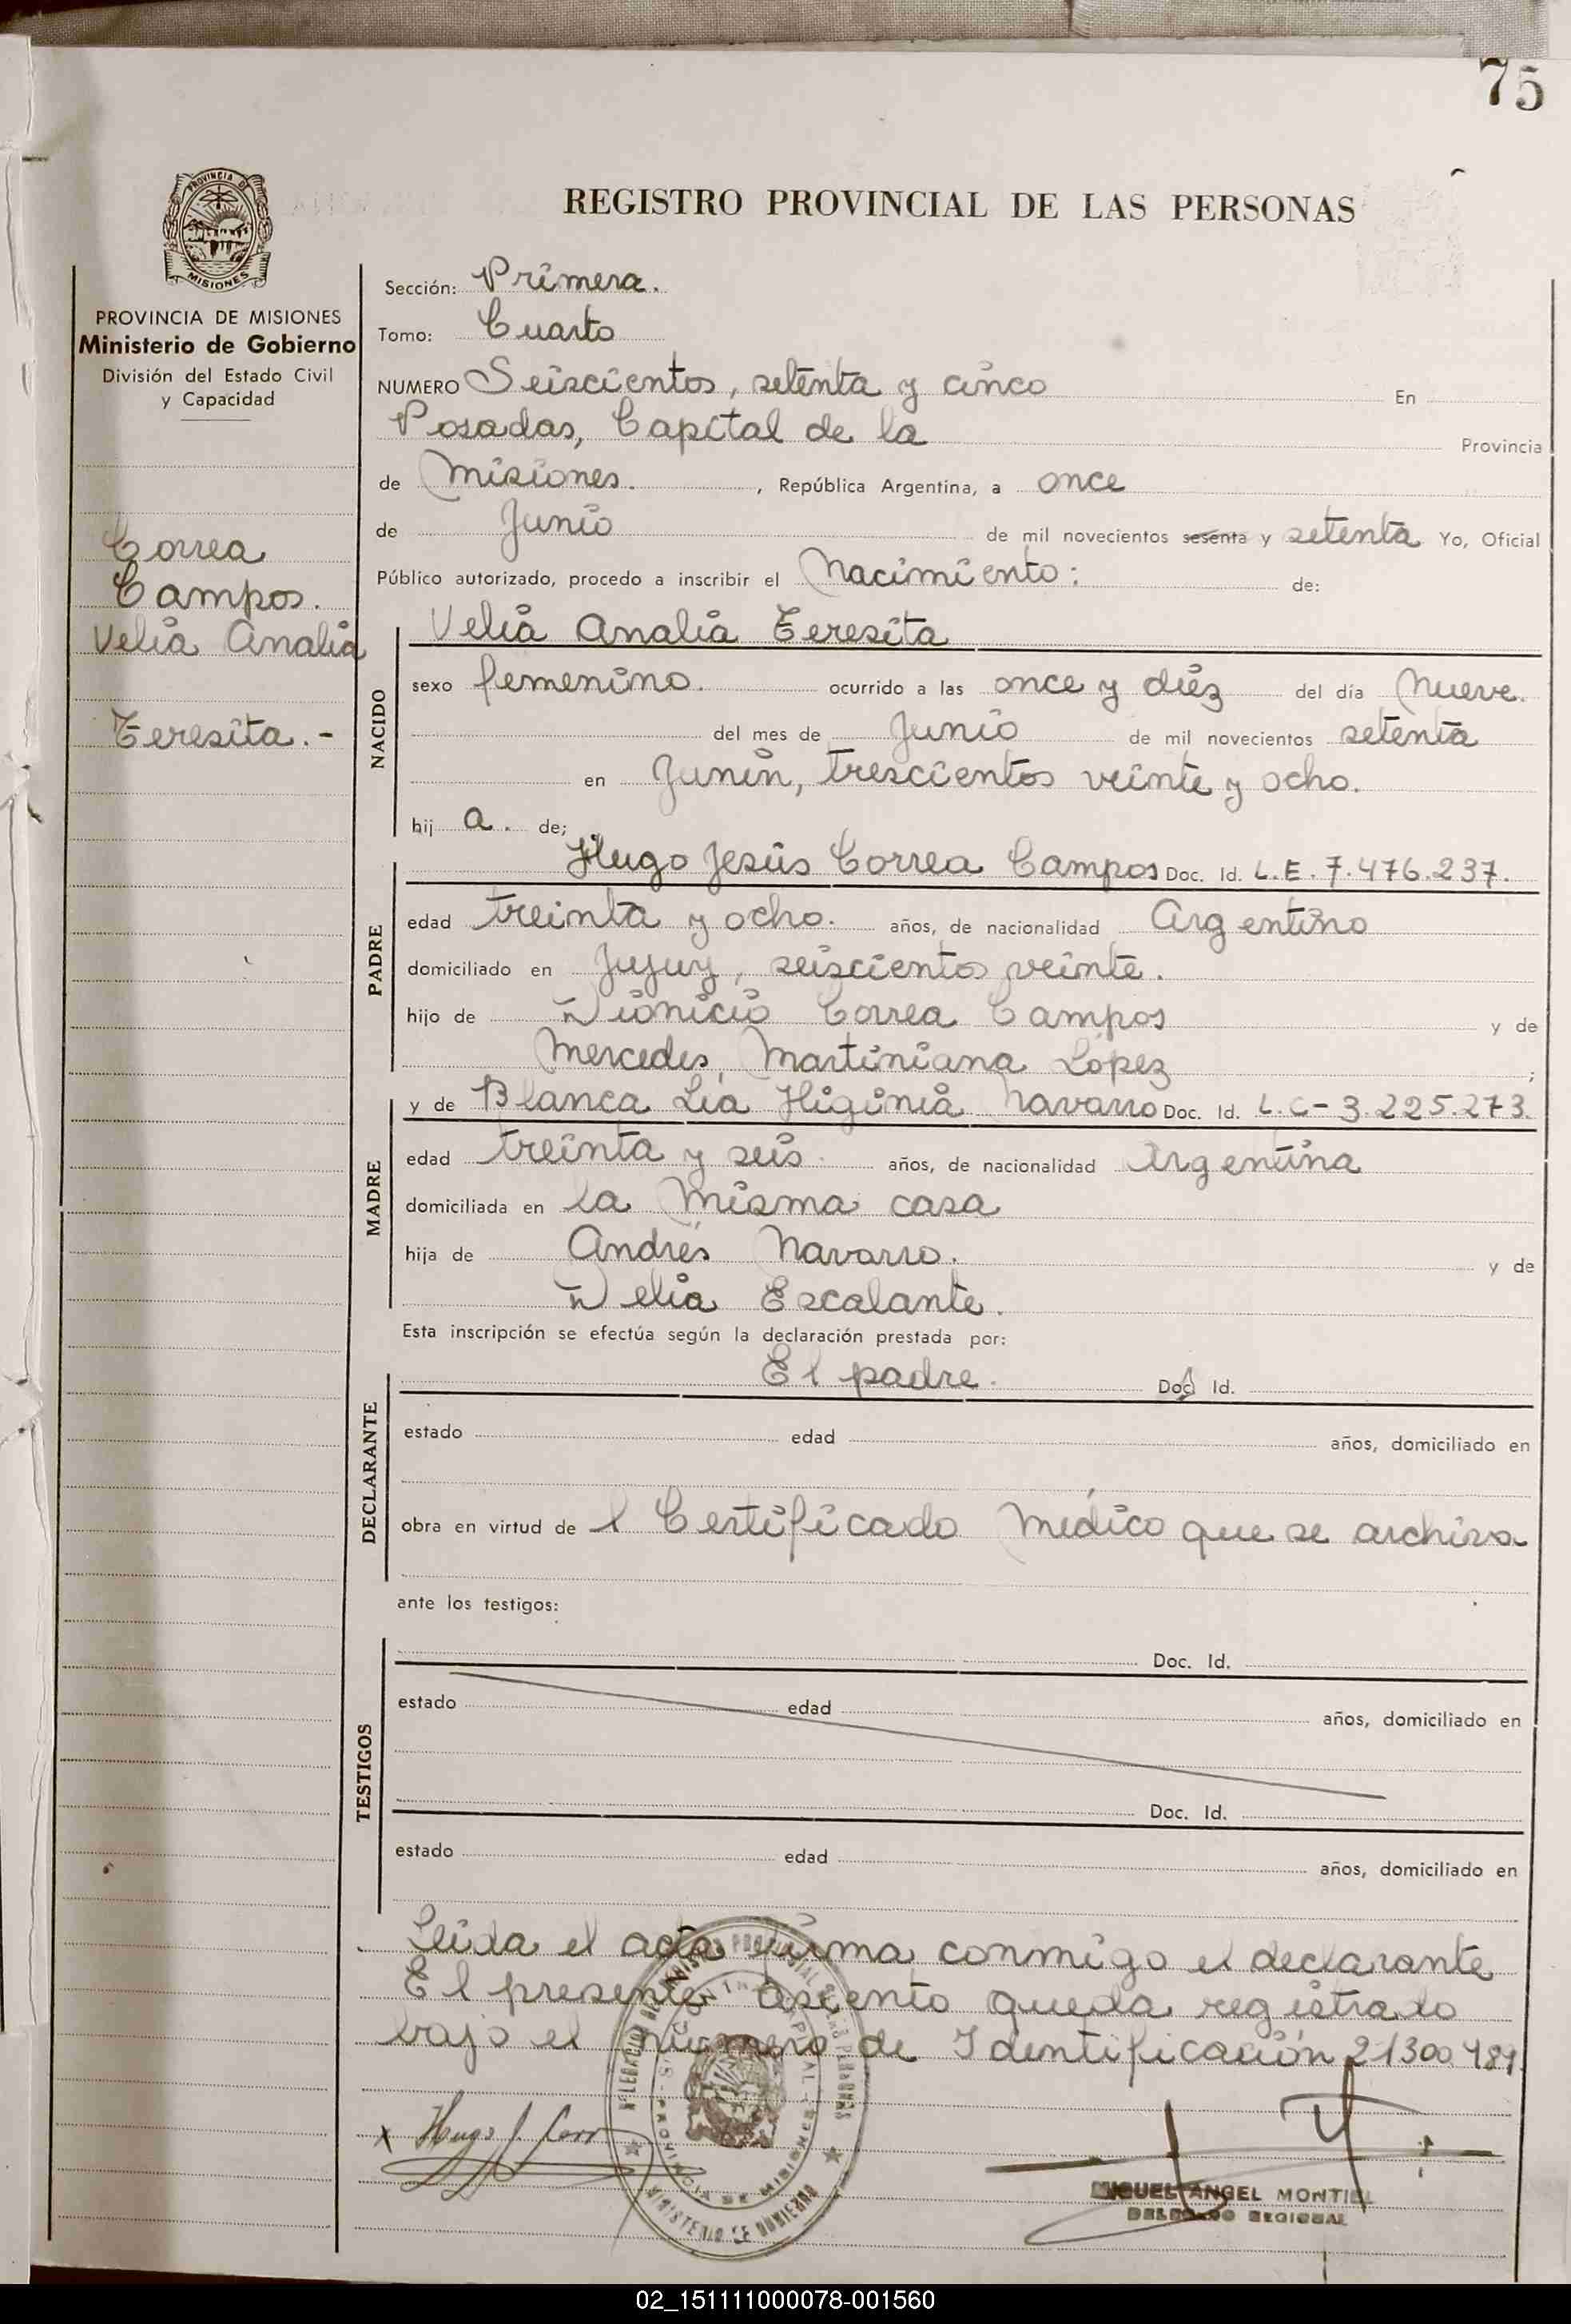 75
PROVINCIA DE
MISIONES
REGISTRO PROVINCIAL DE LAS PERSONAS
PROVINCIA DE MISIONES
Ministerio de Gobierno
División del Estado Civil
y Capacidad
Correa
Campos.
Velia Analia
Teresita.-
Sección: Primera.
Tomo: Cuarto
NUMERO Seiscientos, setenta y cinco En
Posadas, Capital de la Provincia
de Misiones. , República Argentina, a once
de Junio de mil novecientos sesenta y setenta Yo, Oficial
Público autorizado, procedo a inscribir el Nacimiento: de:
NACIDO
Velia Analia Teresita
sexo femenino. ocurrido a las once y diez del día Nueve.
del mes de Junio de mil novecientos setenta
en Junin, trescientos veinte y ocho.
hij a. de;
PADRE
Hugo Jesús Correa Campos Doc. Id. L.E. 7.476.237.
edad treinta y ocho. años, de nacionalidad Argentino
domiciliado en Jujuy, seiscientos veinte.
hijo de Dionicio Correa Campos y de
Mercedes, Martiniana López ;
MADRE
y de Blanca Lia Higinia Navarro Doc. Id. L.C-3.225.273.
edad treinta y seis. años, de nacionalidad Argentina
domiciliada en la misma casa
hija de Andrés Navarro. y de
Delia Escalante.
Esta inscripción se efectúa según la declaración prestada por:
DECLARANTE
El padre. Doc. Id.
estado edad años, domiciliado en
obra en virtud de l Certificado Médico que se archiva
ante los testigos:
TESTIGOS
Doc. Id.
estado edad años, domiciliado en
Doc. Id.
estado edad años, domiciliado en
Leida el acta firma conmigo el declarante
El presente asiento queda registrado
bajo el número de Identificación 21300484
x Hugo J. Corr
MIGUEL ANGEL MONTIEL
DELEGADO REGIONAL
02_151111000078-001560